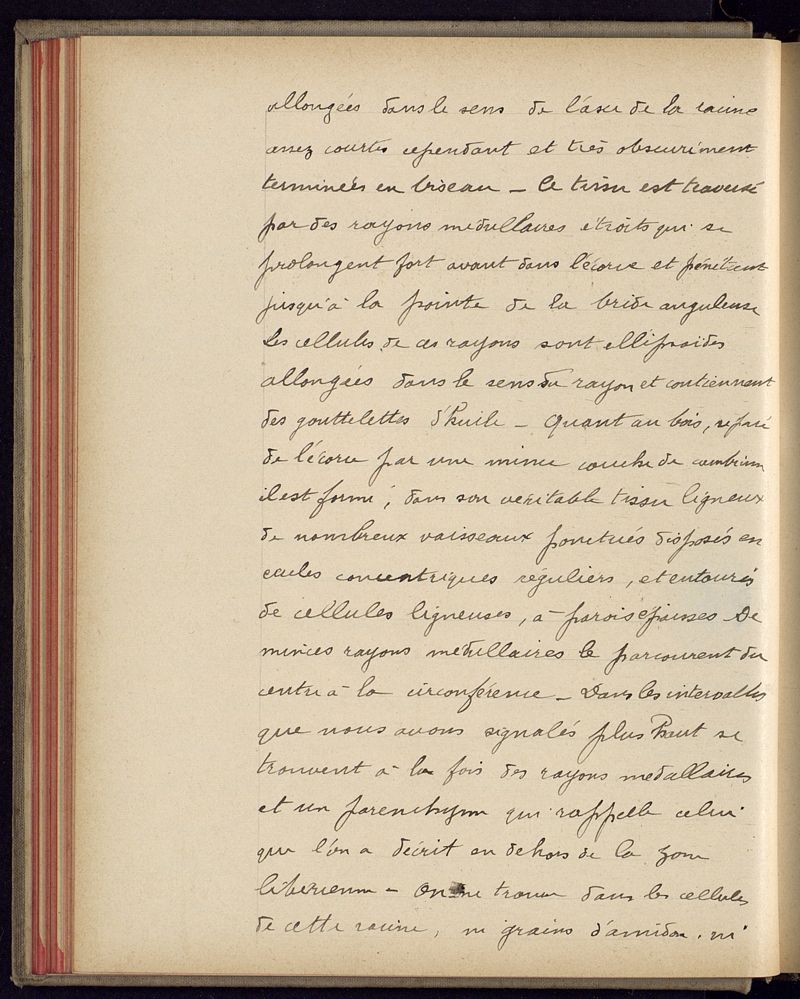 allongées dans le sens de l'axe de la racine
assez courtes cependant et très obscurément
terminées en biseau — Ce tissu est traversé
par des rayons medullaires étroits qui se
prolongent fort avant dans l'écorce et pénètrent
jusqu'à la pointe de la bride anguleuse
Les cellules de ces rayons sont ellipsoides
allongées dans le sens du rayon et contiennent
des gouttelettes d'huile — Quant au bois, séparé
de l'écorce par une mince couche de cambium
il est formé, dans son veritable tissu ligneux
de nombreux vaisseaux ponctués disposés en
cercles concentriques réguliers, et entourés
de cellules ligneuses, à parois epaisses — De
minces rayons medullaires le parcourent du
centre à la circonférence — Dans les intervalles
que nous avons signalés plus haut se
trouvent à la fois des rayons medullaires
et un parenchyme qui rappelle celui
que l'on a décrit en dehors de la zone
libérienne — On ne trouve dans les cellules
de cette racine, ni grains d'amidon, ni